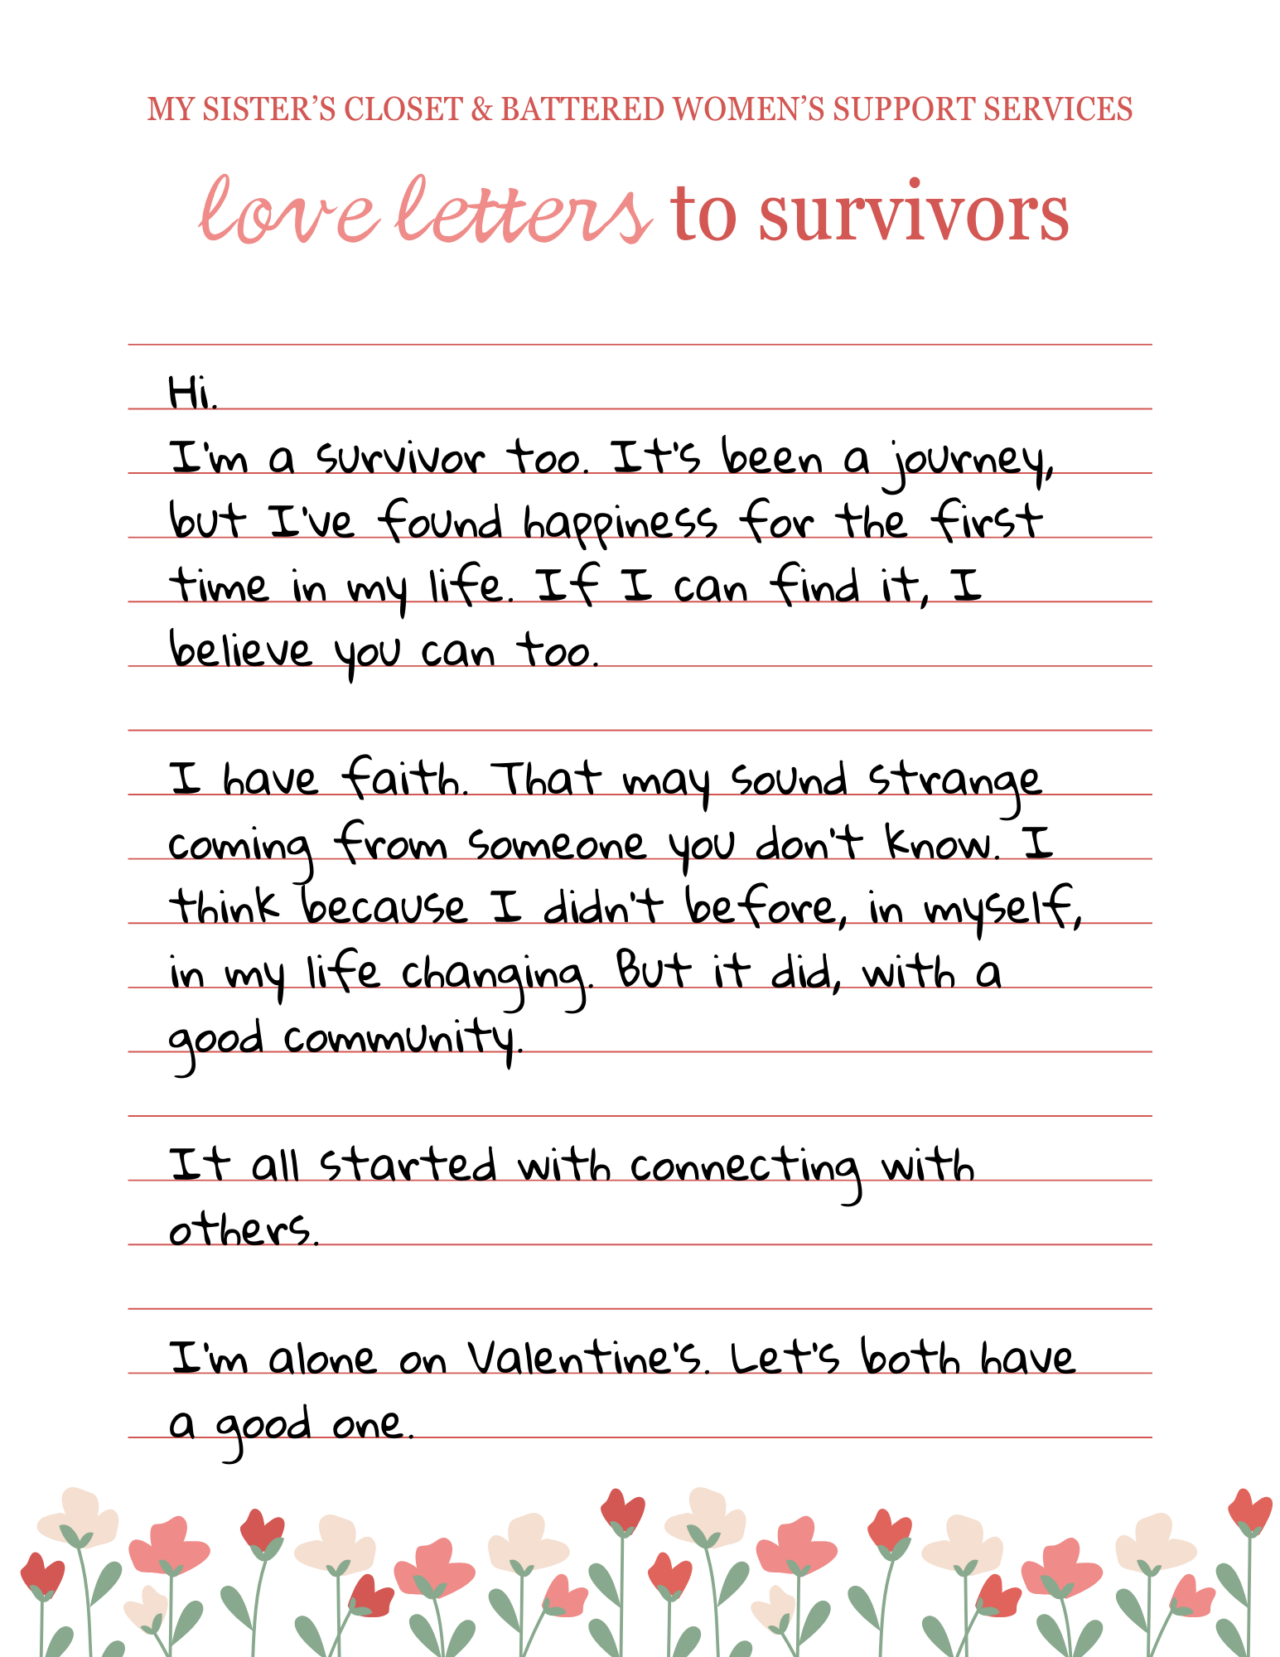 MY SISTER’S CLOSET & BATTERED WOMEN’S SUPPORT SERVICES
love letters to survivors
Hi.
I'm a survivor too. It's been a journey,
but I've found happiness for the first
time in my life. If I can find it, I
believe you can too.
I have faith. That may sound strange
coming from someone you don't know. I
think because I didn't before, in myself,
in my life changing. But it did, with a
good community.
It all started with connecting with
others.
I'm alone on Valentine's. Let's both have
a good one.